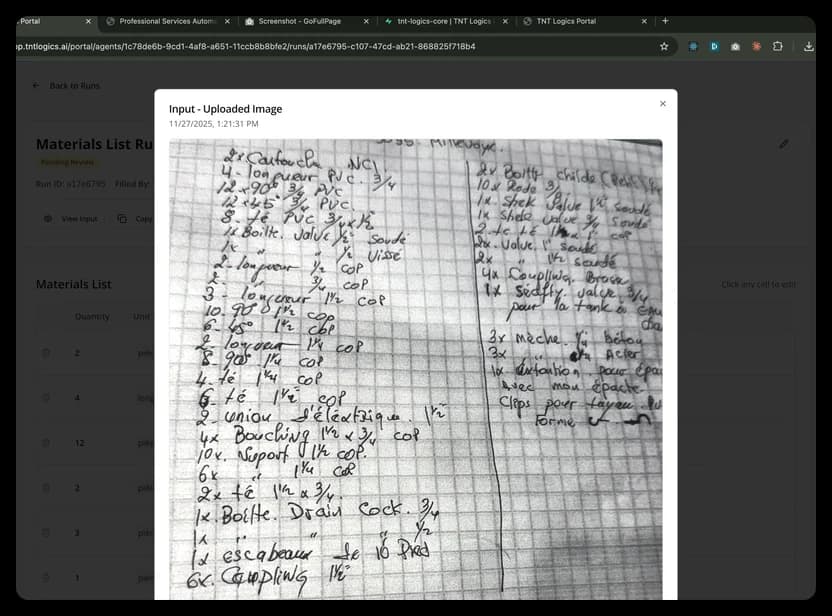 Portal
Professional Services Autom
Screenshot - GoFullPage
tnt-logics-core | TNT Logics
TNT Logics Portal
op.tntlogics.ai/portal/agents/1c78de6b-9cd1-4af8-a651-11ccb8b8bfe2/runs/a17e6795-c107-47cd-ab21-868825f718b4
Back to Runs
Materials List Ru
Pending Review
Run ID: a17e6795 Filled By:
View Input
Copy
Materials List
Click any cell to edit
Quantity Unit
2
4
12
2
3
1
Input - Uploaded Image
11/27/2025, 1:21:31 PM
2x Cartouch NCI
4- longueur PVC. 3/4
12x90° 3/4 PVC
12x45° 3/4 PVC.
8- té PVC 3/4 x 1/2
1x Boitte. Valve 1/2" Soudé
1x " " 1/2 Vissé
2- longueur 1/2 COP
2- " 3/4 COP
3- longueur 1 1/2 COP
10. 90° 1 1/2 COP
6- 45° 1 1/2 COP
2- longueur 1 1/4 COP
8- 90° 1 1/4 COP
4- té 1 1/4 COP
6- té 1 1/2" COP
2- union d'éléxtrique. 1 1/2
4x Bouching 1 1/2 x 3/4 COP
10x. Suport 1 1/2 COP.
6x " 1 1/4 COP
2x té 1 1/2 x 3/4.
1x. Boitte. Drain Cock. 3/4
1x " " " 1/2
1x escabeaux de 10 Pied
6x. Coupling 1 1/2"
Millevoye.
2x Boitte childe
10x Rode 3/
1x Shek Valve 1 1/4" soudé
1x Shek valve 3/4 Soudé
2- té COP
2x. Valve. 1" soudé
2x " 1 1/2 soudé
4x Couplling. Brass
1x Sécifty. valve. 3/4
pour la tank à eau
cha
3x mèche. béton
3x " Acier
1x. éxtention. pour épa
avec mon épacte
Clips pour tuyau.
Forme